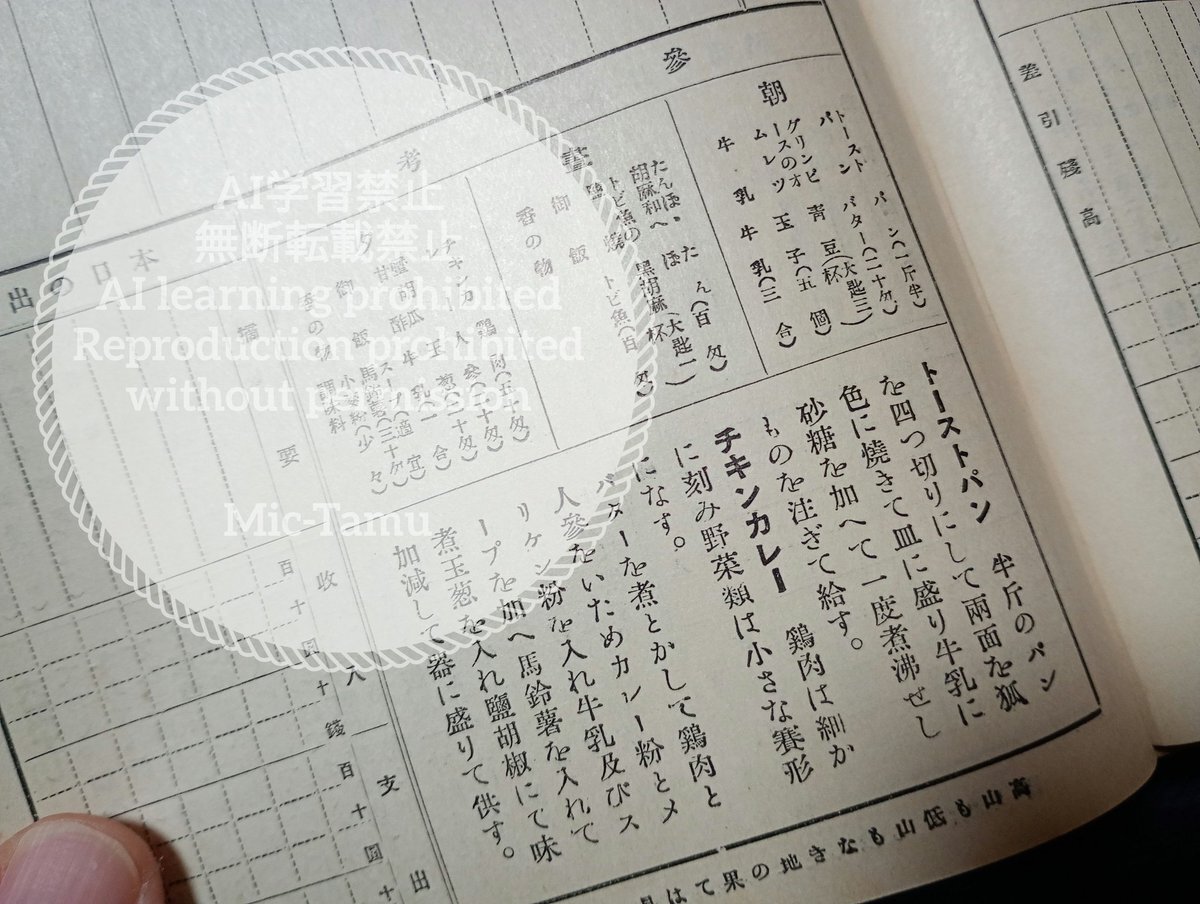 參
考
朝
トースト
パン
パン(一斤半)
バター(二十匁)
グリンピ
ースのオ
ムレツ
青豆(大匙三
杯)
玉子(五個)
牛乳
牛乳(三合)
晝
たんぽゝ
胡麻和へ
たんぽゝ(百匁)
黒胡麻(大匙一
杯)
トビ魚の
鹽燒
トビ魚(百匁)
御飯
香の物
夕
チキンカレー
鷄肉(五十匁)
人參(二十匁)
玉葱(二十匁)
牛乳(一合)
スープ(適宜)
馬鈴薯(三十匁)
小麥粉(少々)
調味料
胡瓜
甘酢
御飯
トーストパン 半斤のパン
を四つ切りにして兩面を狐
色に燒きて皿に盛り牛乳に
砂糖を加へて一度煮沸せし
ものを注ぎて給す。
チキンカレー 鷄肉は細か
に刻み野菜類は小さな賽形
になす。
バターを煮とかして鷄肉と
人參をいためカレー粉とメ
リケン粉を入れ牛乳及びス
ープを加へ馬鈴薯を入れて
煮玉葱を入れ鹽胡椒にて味
加減して器に盛りて供す。
差引殘高
出の日本
摘要
收入
百十圓十錢
支出
百十圓十
高山も低山もなき地の果ては見
AI学習禁止
無断転載禁止
AI learning prohibited
Reproduction prohibited
without permission
Mic-Tamu